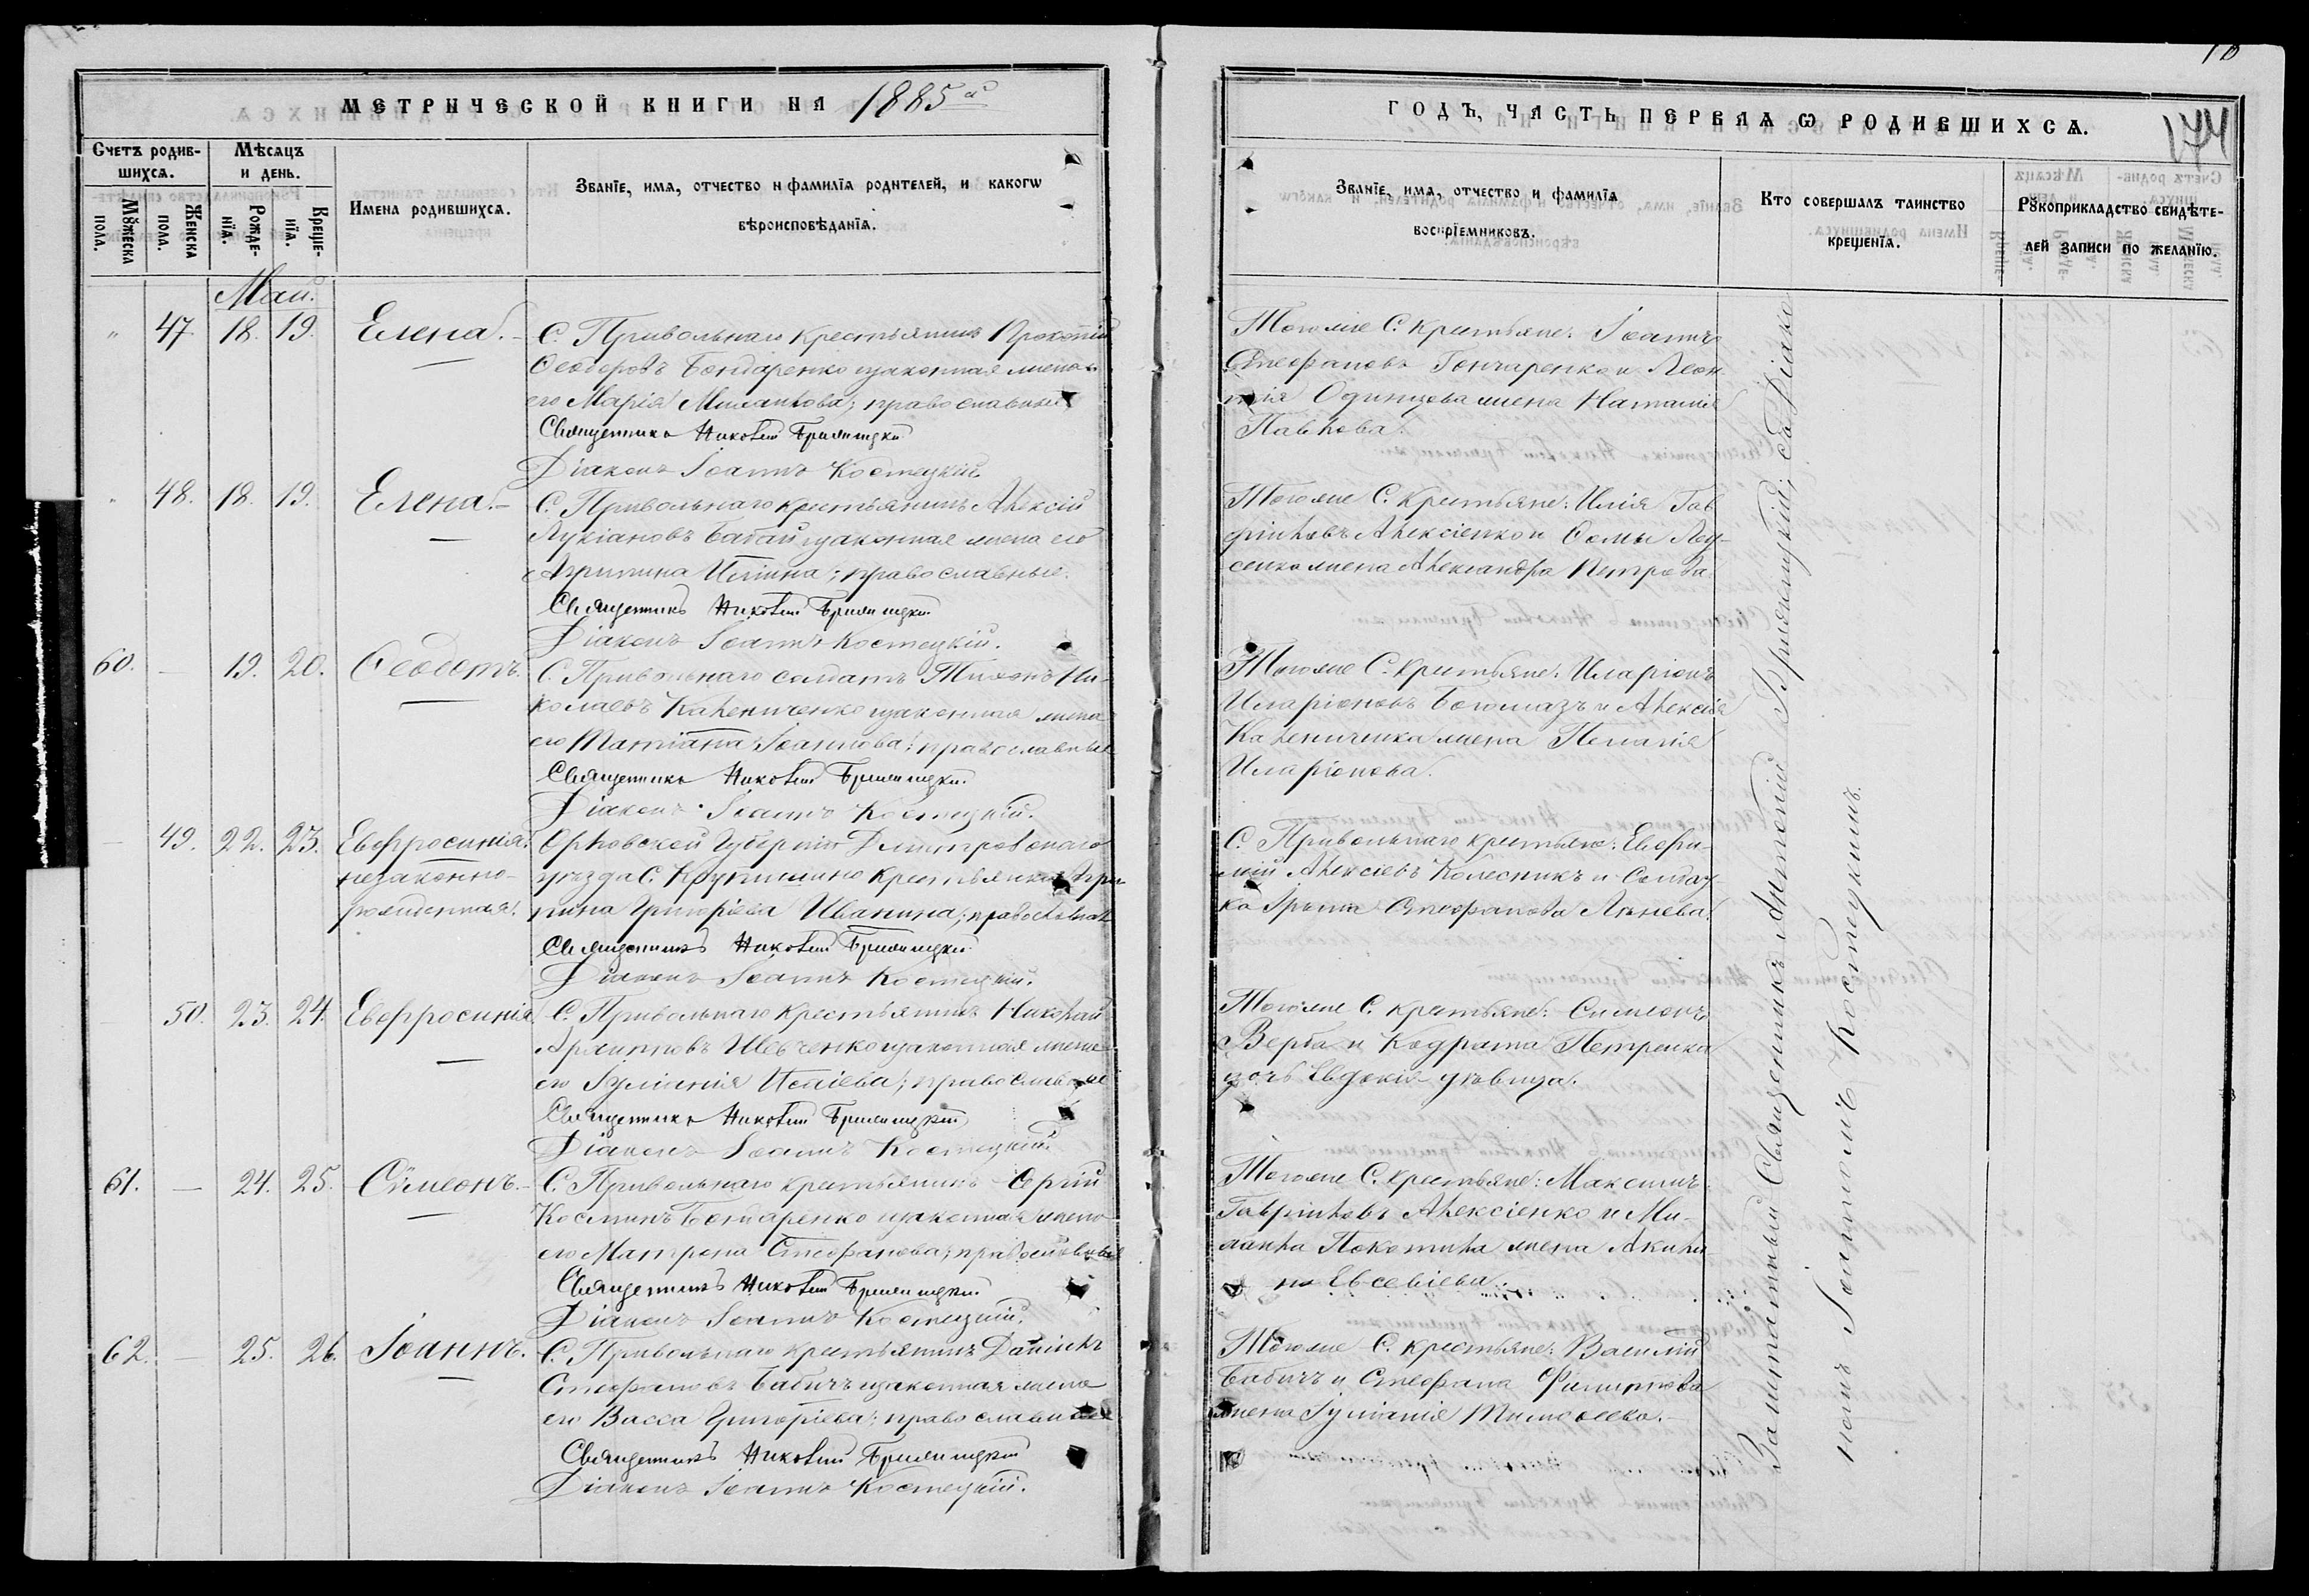 МЕТРИЧЕСКОЙ КНИГИ НА 1885й
Счетъ родив-
шихся.
Мѣсяцъ
и день.
Мꙋжеска
пола.
Женска
пола.
Рожде-
нїя.
Креще-
нїя.
Имена родившихся.
Званїе, имя, отчество и фамилїя родителей, и какогѡ
вѣроисповѣданїя.
Май.
" 47. 18. 19. Елена.
С. Привольнаго крестьянинъ Прокопій
Ѳеодоровъ Бондаренко и законная жена
его Марія Михаилова; православные
Священникъ Николай
Діаконъ Іоаннъ Костецкій.
" 48. 18. 19. Елена.
С. Привольнаго крестьянинъ Алексій
Лукіановъ Бабай и законная жена его
Агрипина Иліина; православные.
Священникъ Николай
Діаконъ Іоаннъ Костецкій.
60. — 19. 20. Ѳеодотъ.
С. Привольнаго солдатъ Тихонъ Ни-
колаевъ Калениченко и законная жена
его Татіана Іоаннова; православные
Священникъ Николай
Діаконъ Іоаннъ Костецкій.
— 49. 22. 23. Евфросинія.
незаконно-
рожденная.
Орловской Губерніи Дмитровскаго
уѣзда С. крестьянка Агри-
пина Григоріева Иванина; православная
Священникъ Николай
Діаконъ Іоаннъ Костецкій.
50. 23. 24. Евфросинія
С. Привольнаго крестьянинъ Николай
Архиповъ Шевченко и законная жена
его Іуліанія Исаіева; православные
Священникъ Николай
Діаконъ Іоаннъ Костецкій.
61. — 24. 25. Сѷмеонъ.
С. Привольнаго крестьянинъ Сергій
Косминъ Бондаренко и законная жена
его Матрона Стефанова; православные
Священникъ Николай
Діаконъ Іоаннъ Костецкій.
62. — 25. 26. Іоаннъ.
С. Привольнаго крестьянинъ Даніилъ
Стефановъ Бабичъ и законная жена
его Васса Григоріева; православные
Священникъ Николай
Діаконъ Іоаннъ Костецкій.
ГОДЪ, ЧАСТЬ ПЕРВАЯ Ѡ РОДИВШИХСЯ.
174
Званїе, имя, отчество и фамилїя
воспрїемниковъ.
Кто совершалъ таинство
крещенїя.
Рꙋкоприкладство свидѣте-
лей записи по желанїю.
Тогоже С. крестьяне: Іоаннъ
Стефановъ Гончаренко и Леон-
тія Одинцова жена Наталія
Павлова.
Тогоже С. крестьяне: Илія Гав-
ріиловъ Алексіенко и Ѳомы
жена Александра Петрова.
Тогоже С. крестьяне: Иларіонъ
Иларіоновъ Богомазъ и Алексія
Каленичека жена Пелагія
Иларіонова.
С. Привольнаго крестьяне: Евфи-
мій Алексіевъ Колесникъ и Солдат-
ка Ірина Стефанова Лянева.
Тогоже С. крестьяне: Симеонъ
Верба и Кодрата Петренка
дочь Евдокія дѣвица.
Тогоже С. крестьяне: Максимъ
Гавріиловъ Алексіенко и Ми-
хаила Покотила жена Акили-
на Евсевіева.
Тогоже С. крестьяне: Василій
Бабичъ и Стефана Филиппова
жена Іуліанія Тимоѳеева.
Заштатный Священникъ Антоній съ Діако-
номъ Іоанномъ Костецкимъ.